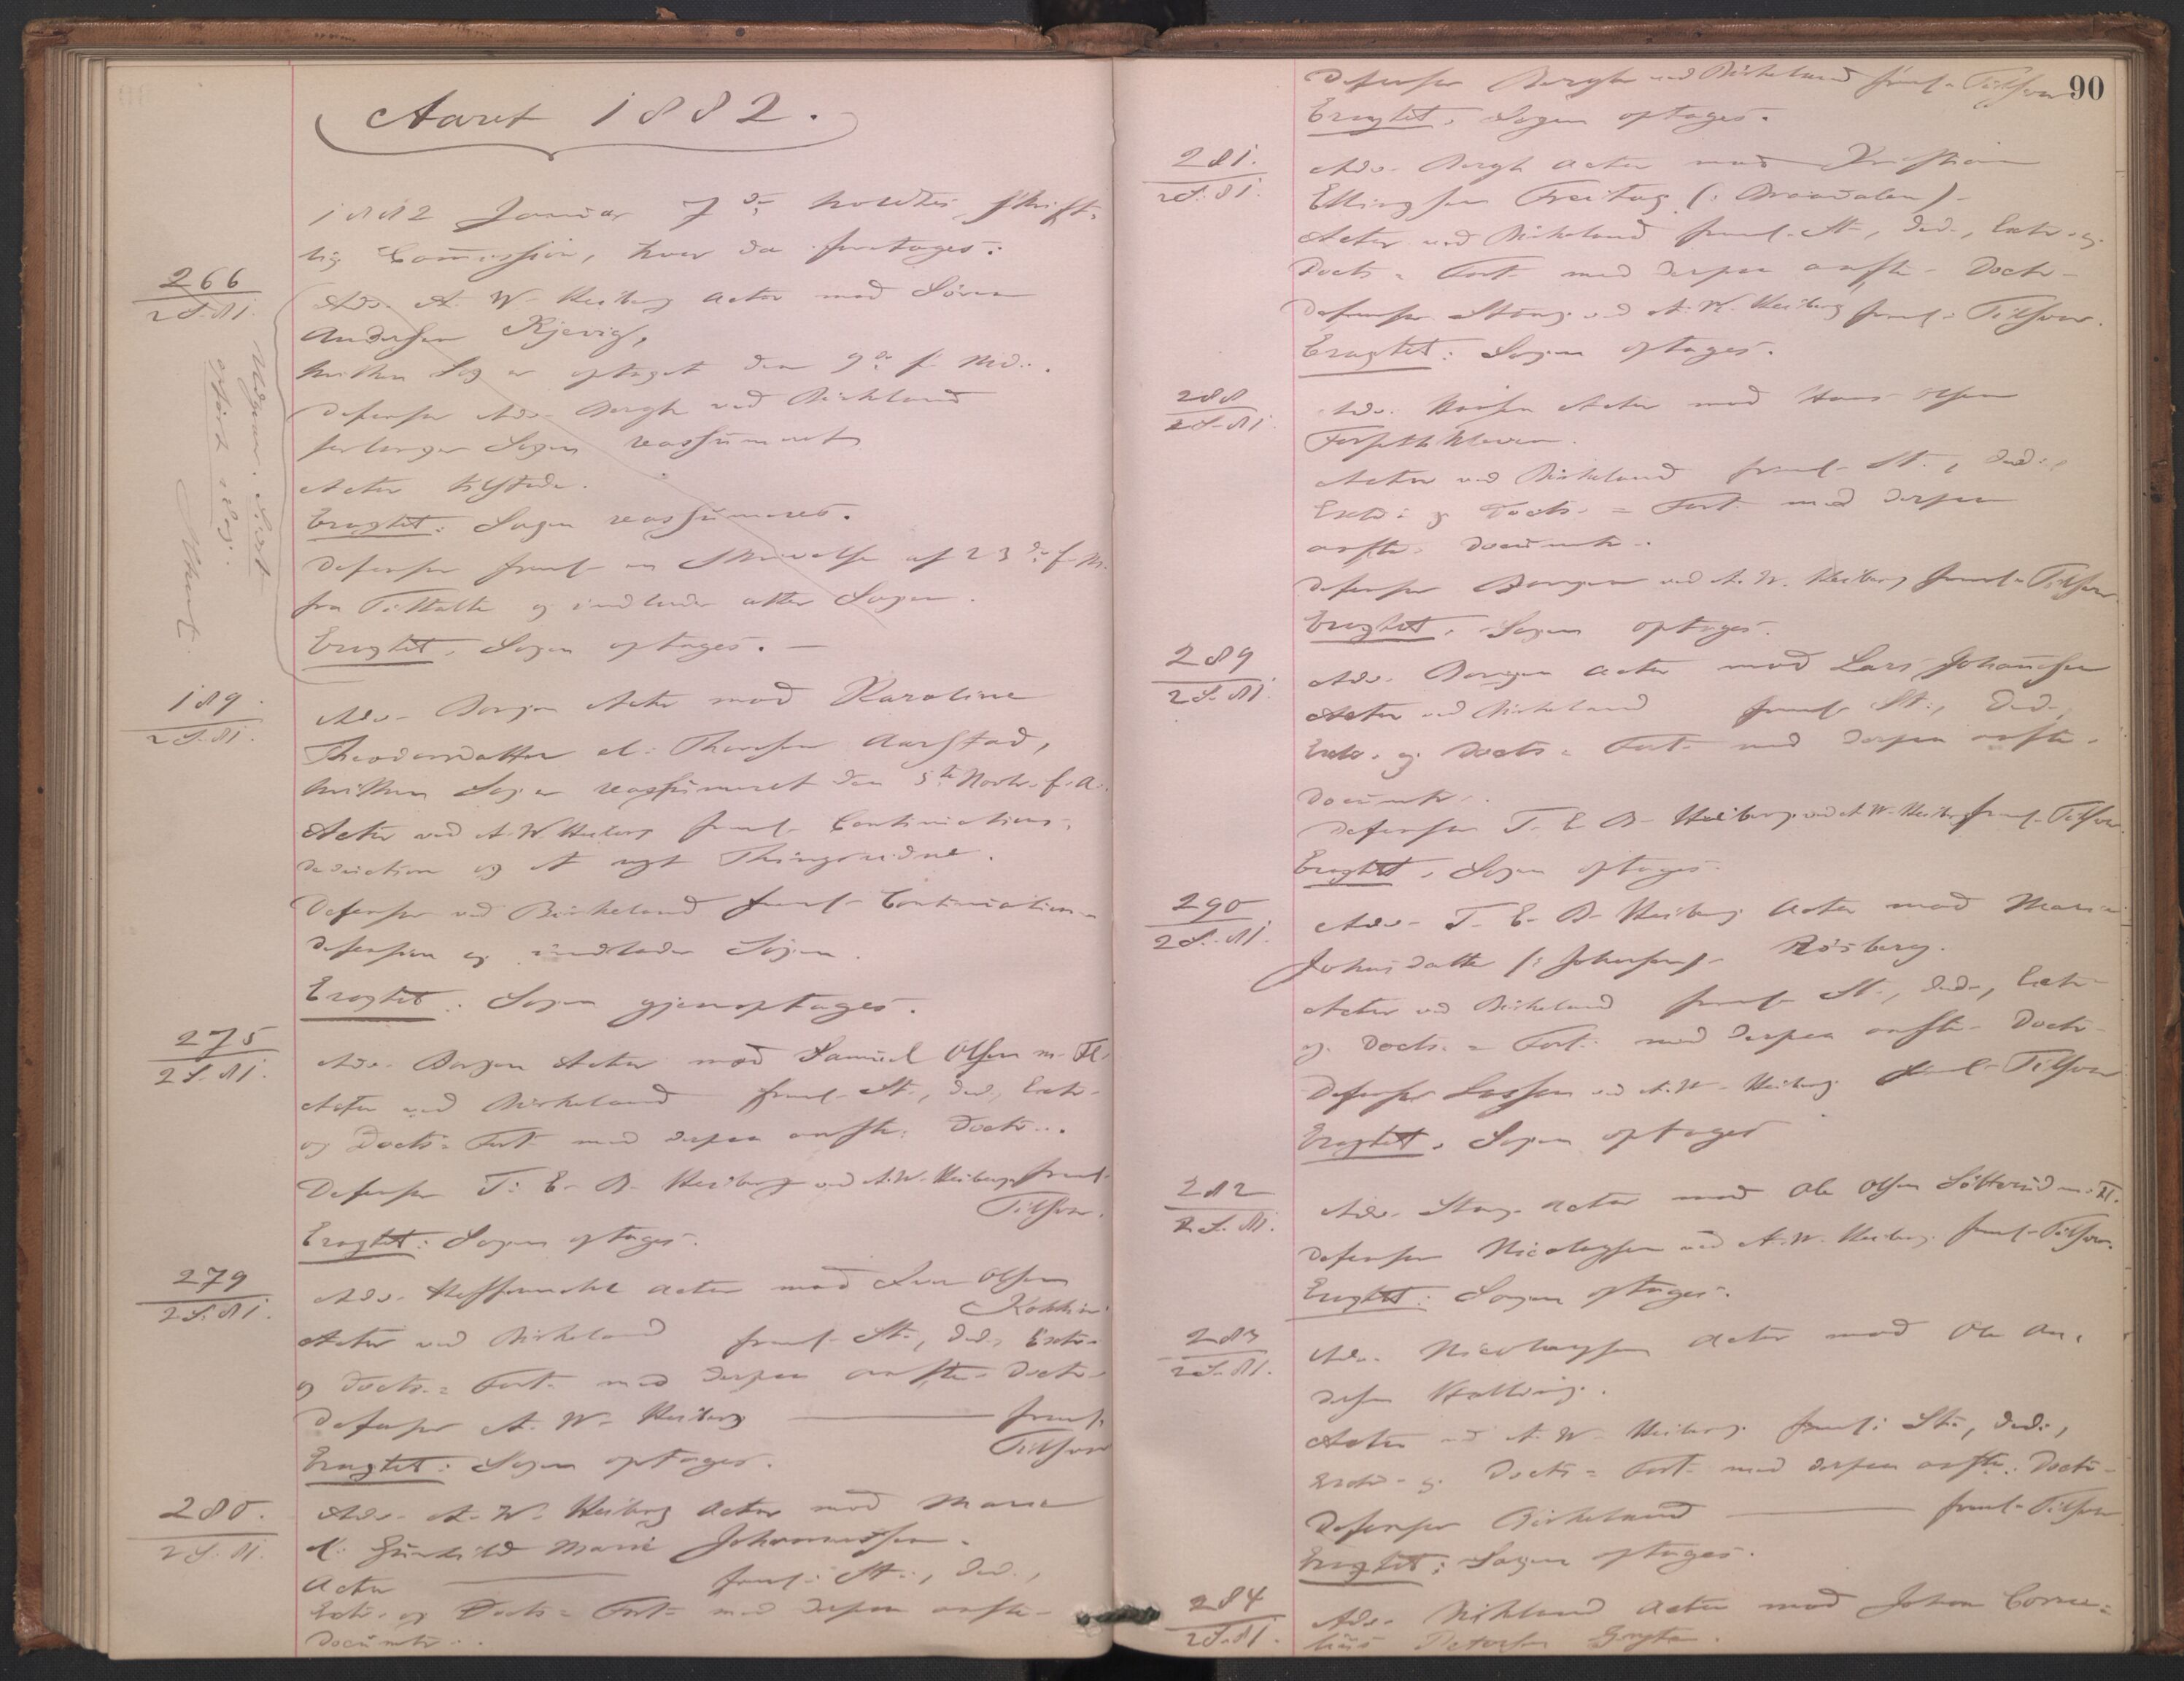 Aaret 1882.
1882 Januar 7de holdtes skrift-
lig Commission, hvor da foretages:
266
2 S. 81.
Adv. A. W. Heiberg Actor mod Sören
Andersen Kjevig,
hvilken Sag er optaget den 9de f. Md.
Defensor Adv. Bergh ved Birkeland
forlanger Sagen reassumeret
Actor tilstede.
Eragtet: Sagen reassumeres.
Defensor freml. en Skrivelse af 23de f. M.
fra Tiltalte og indlader atter Sagen.
Eragtet. Sagen optages. —
Udgaar.
189.
2 S. 81.
Adv. Borgen Actor mod Karoline
Theodorsdatter el. Thorsen Aarstad,
hvilken Sag er reassumeret den 5te Novbr. f. A.
Actor ved A. W. Heiberg freml. Continuations-
deduction og et nyt Thingsvidne.
Defensor ved Birkeland freml. Continuations-
defension og indlader Sagen.
Eragtet: Sagen gjenoptages.
275
2 S. 81.
Adv. Borgen Actor mod Samuel Olsen m. Fl.
Actor ved Birkeland freml. St., Ded., Extr.
og Docts = Fort. med derpaa anförte Doctr.
Defensor T. E. B. Heiberg ved A. W. Heiberg freml.
Tilsvar.
Eragtet: Sagen optages.
279
2 S. 81.
Adv. Actor mod Olsen
Actor ved Birkeland freml. St., Ded., Extr.
og Docts. = Fort. med derpaa anförte Doctr.
Defensor A. W. Heiberg — freml.
Tilsvar
Eragtet: Sagen optages.
280.
2 S. 81.
Adv. A. W. Heiberg Actor mod Maria
el. Gunhild Marie Johannessen.
Actor — freml. St., Ded.,
Extr. og Docts = Fort. med derpaa anförte
Documtr.
90
Defensor Bergh ved Birkeland freml. Tilsvar
Eragtet. Sagen optages.
281.
2 S. 81.
Adv. Bergh Actor mod Kristian
Ellingsen Freitag
Actor ved Birkeland freml. St., Ded., Extr. og
Docts = Fort. med derpaa anförte Doctr.
Defensor Stang ved A. W. Heiberg freml. Tilsvar.
Eragtet: Sagen optages.
288
2 S. 81.
Adv. Actor mod Hans Olsen
Actor ved Birkeland freml. St., Ded.,
Extr. og Docts. = Fort. med derpaa
anförte Documtr.
Defensor Borgen ved A. W. Heiberg freml. Tilsvar.
Eragtet. Sagen optages.
289
2 S. 81.
Adv. Borgen Actor mod Lars Johannesen
Actor ved Birkeland freml. St., Ded.,
Extr. og Docts = Fort. med derpaa anförte
Documtr.
Defensor T. E. B. Heiberg ved A. W. Heiberg freml. Tilsvar.
Eragtet. Sagen optages.
290
2 S. 81.
Adv. T. E. B. Heiberg Actor mod Maria
Johnsdatter Rösberg.
Actor ved Birkeland freml. St., Ded., Extr.
og Docts. = Fort. med derpaa anförte Doctr.
Defensor Lassen ved A. W. Heiberg freml. Tilsvar
Eragtet. Sagen optages
282
2 S. 81.
Adv. Stang Actor mod Ole Olsen m. Fl.
Defensor Nicolaysen ved A. W. Heiberg freml. Tilsvar.
Eragtet: Sagen optages.
283
2 S. 81.
Adv. Nicolaysen Actor mod Ole An-
dersen
Actor ved A. W. Heiberg freml. St., Ded.,
Extr. og Docts = Fort. med derpaa anförte Doctr.
Defensor Birkeland — freml. Tilsvar
Eragtet: Sagen optages.
284
2 S. 81.
Adv. Actor mod Johan Corne-
lius Petersen